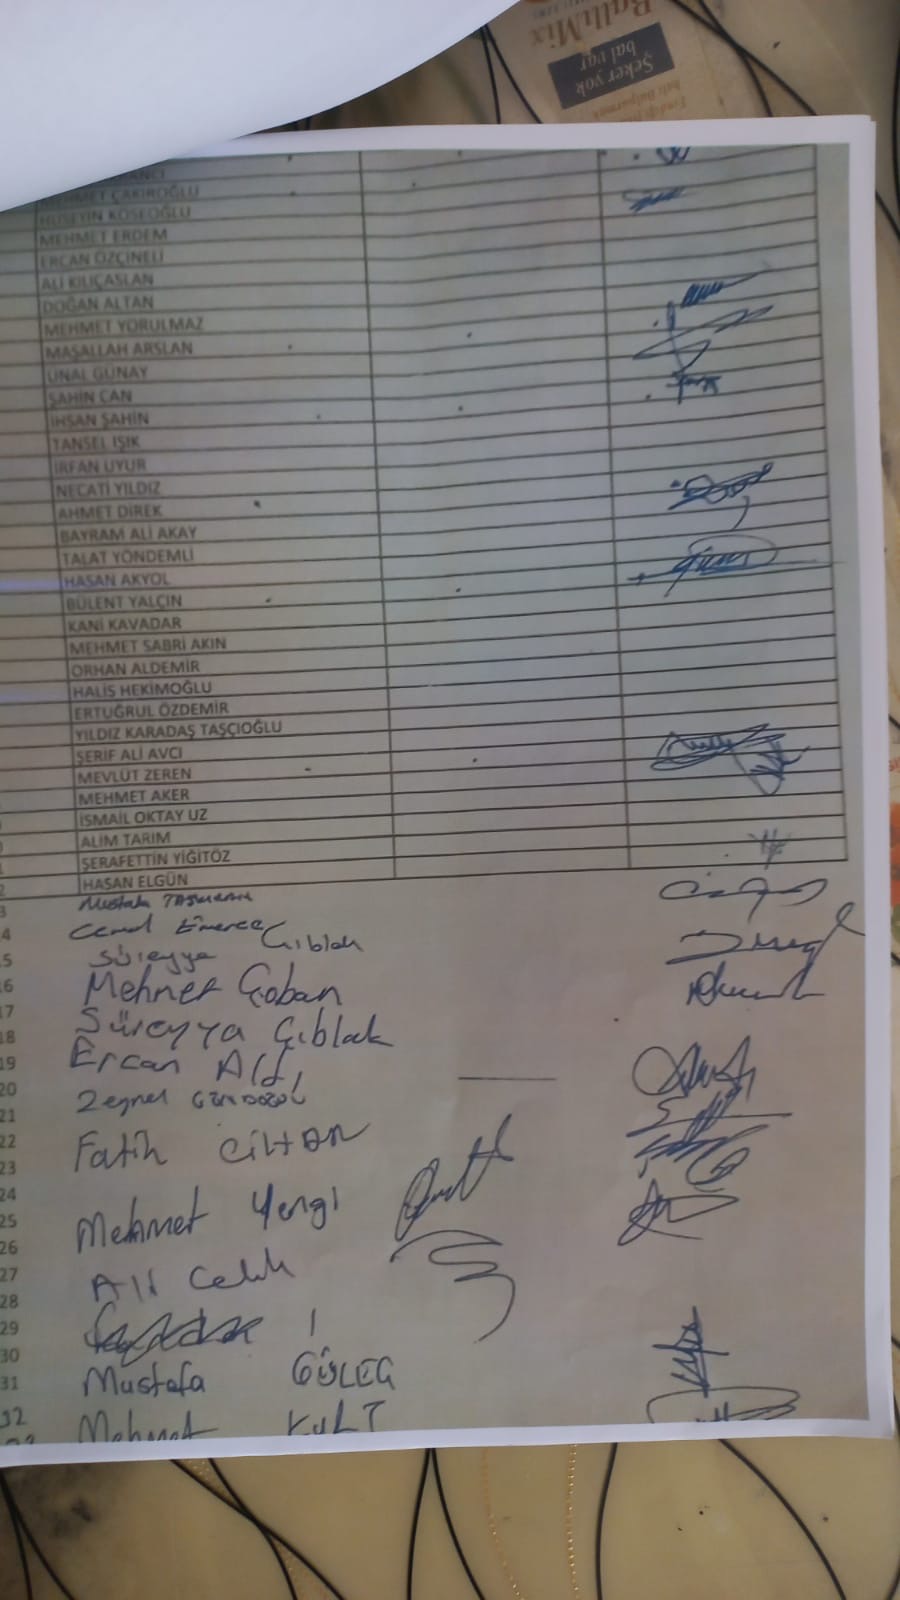 BallıMix
Şeker yok
bal var
ANCI
MEHMET ÇAKIROĞLU
HÜSEYİN KÖSEOĞLU
MEHMET ERDEM
ERCAN ÖZÇİNELİ
ALİ KILIÇASLAN
DOĞAN ALTAN
MEHMET YORULMAZ
MAŞALLAH ARSLAN
ÜNAL GÜNAY
ŞAHİN CAN
İHSAN ŞAHİN
TANSEL IŞIK
İRFAN UYUR
NECATİ YILDIZ
AHMET DİREK
BAYRAM ALİ AKAY
TALAT YÖNDEMLİ
HASAN AKYOL
BÜLENT YALÇIN
KANİ KAVADAR
MEHMET SABRİ AKIN
ORHAN ALDEMİR
HALİS HEKİMOĞLU
ERTUĞRUL ÖZDEMİR
YILDIZ KARADAŞ TAŞÇIOĞLU
ŞERİF ALİ AVCI
MEVLÜT ZEREN
MEHMET AKER
İSMAİL OKTAY UZ
ALİM TARIM
ŞERAFETTİN YİĞİTÖZ
HASAN ELGÜN
Mustafa
Cemal
Süreyya Çıblak
Mehmet Çoban
Süreyya Çıblak
Ercan
Zeynel
Fatih
Mehmet Yengi
Ali Çelik
Mustafa GÜLEÇ
Mehmet KURT
14
15
16
17
18
19
20
21
22
23
24
25
26
27
28
29
30
31
32